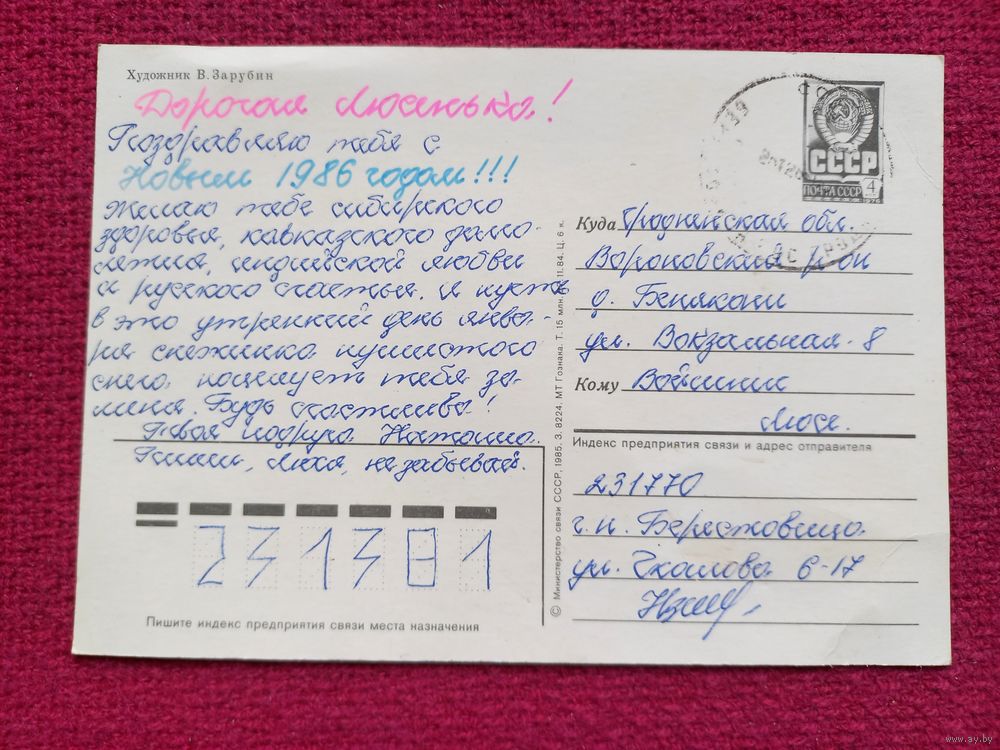 Художник В. Зарубин
Дорогая Люсенька!
Поздравляю тебя с
Новым 1986 годом!!!
Желаю тебе сибирского
здоровья, кавказского долго-
летия, индийской любви
и русского счастья. И пусть
в это утренний день янва-
ря снежинка пушистого
снега поцелует тебя за
меня. Будь счастлива!
Твоя подруга Наташа.
Пиши, Люся, не забывай.
Пишите индекс предприятия связи места назначения
231381
© Министерство связи СССР, 1985. З. 8224. МТ Гознака. Т. 15 млн. 11.84. Ц. 6 к.
СССР
ПОЧТА СССР
4
1976
Куда Гродненская обл.
Вороновский р-он
д. Бенякони
ул. Вокзальная 8
Кому
Люсе.
Индекс предприятия связи и адрес отправителя
231770
г.п. Берестовица
ул. Чкалова 6-17
www.ay.by